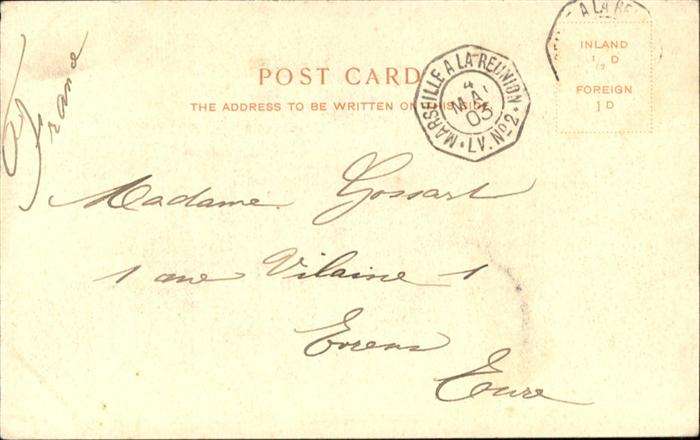 A LA RE
INLAND
½ D
FOREIGN
1 D
POST CARD
THE ADDRESS TO BE WRITTEN ON THIS SIDE
MARSEILLE A LA REUNION
4
MAI
03
LV. No 2
France
Madame Gossart
1 rue Vilaine 1
Evreux
Eure